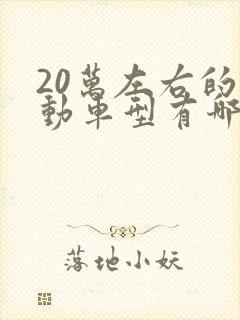 20萬左右的
動車型有哪
落地小妖